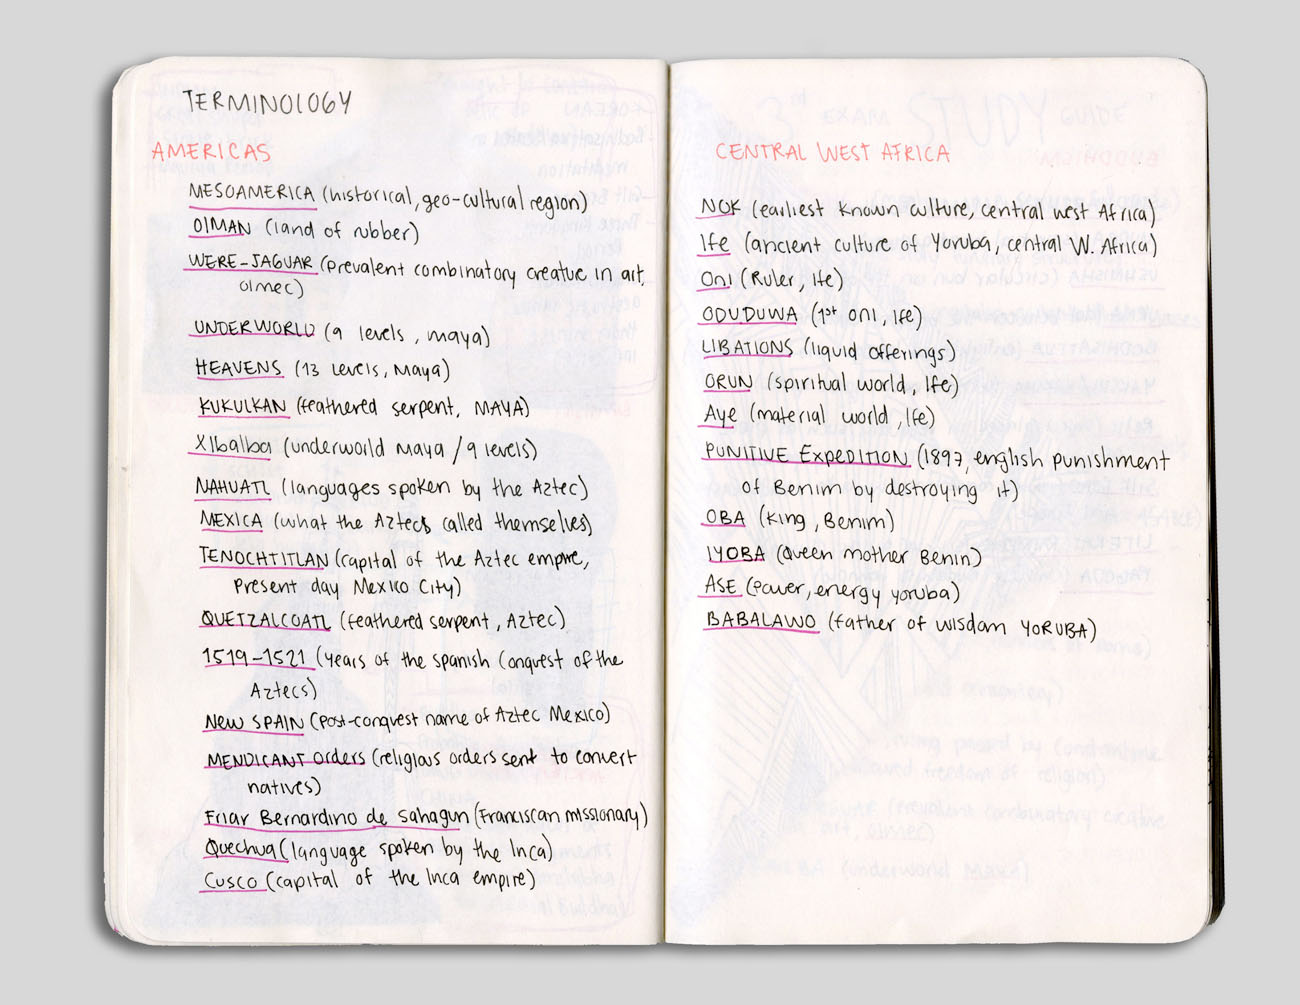 TERMINOLOGY
AMERICAS
MESOAMERICA (historical, geo-cultural region)
OlMAN (land of rubber)
WERE-JAGUAR (prevalent combinatory creature in art,
olmec)
UNDERWORLD (9 levels, maya)
HEAVENS (13 levels, Maya)
KUKULKAN (feathered serpent, MAYA)
XIbalba (underworld Maya / 9 levels)
NAHUATL (languages spoken by the Aztec)
MEXICA (what the Aztecs called themselves)
TENOCHTITLAN (capital of the Aztec empire,
Present day Mexico City)
QUETZALCOATL (feathered serpent, Aztec)
1519-1521 (years of the spanish Conquest of the
Aztecs)
NEW SPAIN (post-conquest name of Aztec Mexico)
MENDICANT orders (religious orders sent to convert
natives)
Friar Bernardino de Sahagun (Franciscan missionary)
Quechua (language spoken by the Inca)
Cusco (capital of the Inca empire)
CENTRAL WEST AFRICA
NOK (earliest known culture, central west Africa)
Ife (ancient culture of Yoruba, central W. Africa)
Oni (Ruler, Ife)
ODUDUWA (1st oni, Ife)
LIBATIONS (liquid offerings)
ORUN (spiritual world, Ife)
Aye (material world, Ife)
PUNITIVE EXPEDITION (1897, english punishment
of Benim by destroying it)
OBA (King, Benim)
IYOBA (Queen mother Benin)
ASE (Power, energy yoruba)
BABALAWO (father of wisdom YORUBA)